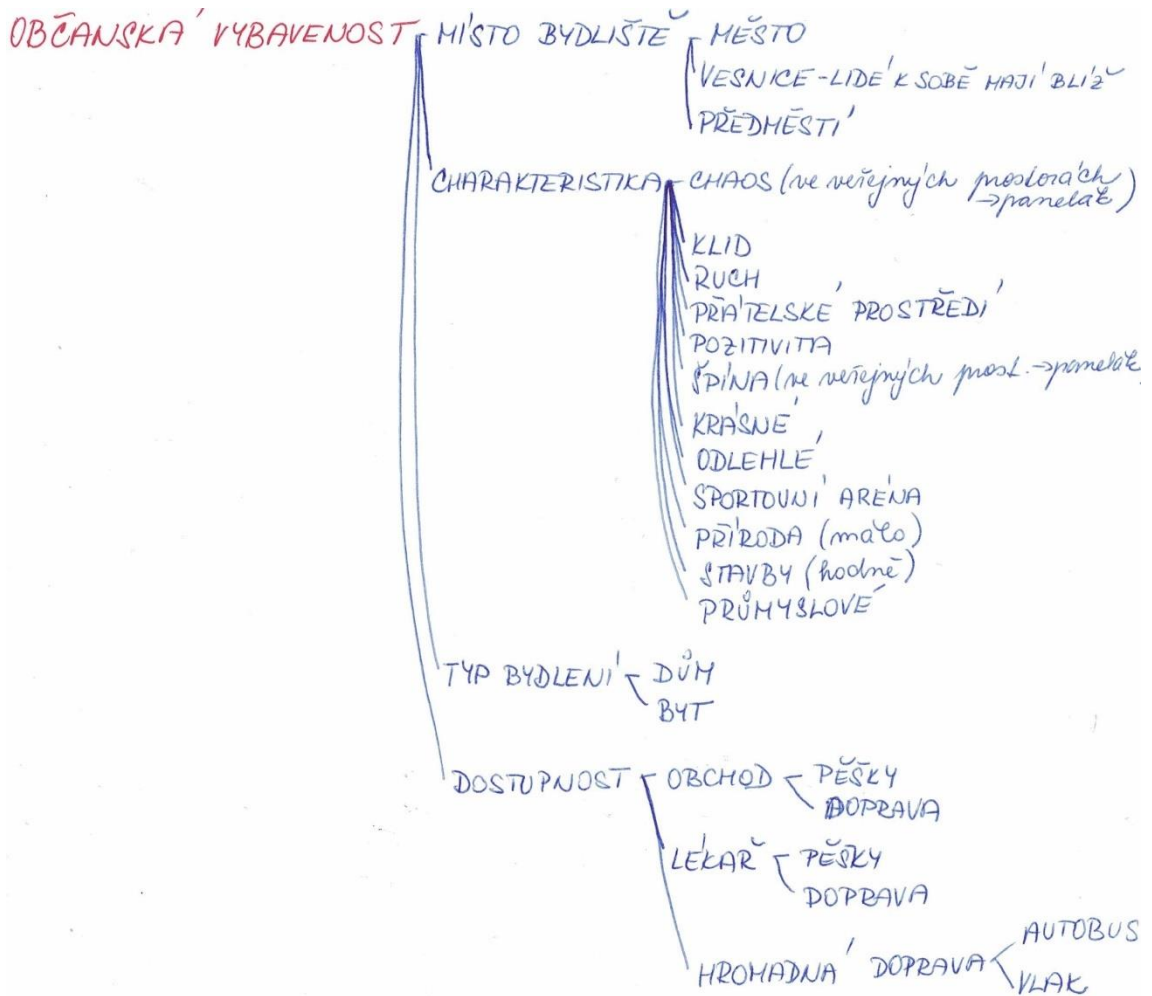 OBČANSKÁ VYBAVENOST MÍSTO BYDLIŠTĚ MĚSTO
VESNICE - LIDÉ K SOBĚ MAJÍ BLÍŽ
PŘEDMĚSTÍ
CHARAKTERISTIKA CHAOS (ve veřejných prostorách
→ panelák)
KLID
RUCH
PŘÁTELSKÉ PROSTŘEDÍ
POZITIVITA
ŠPÍNA (ve veřejných prost. → panelák
KRÁSNÉ
ODLEHLÉ
SPORTOVNÍ ARÉNA
PŘÍRODA (málo)
STAVBY (hodně)
PRŮMYSLOVÉ
TYP BYDLENÍ DŮM
BYT
DOSTUPNOST OBCHOD PĚŠKY
DOPRAVA
LÉKAŘ PĚŠKY
DOPRAVA
HROMADNÁ DOPRAVA AUTOBUS
VLAK